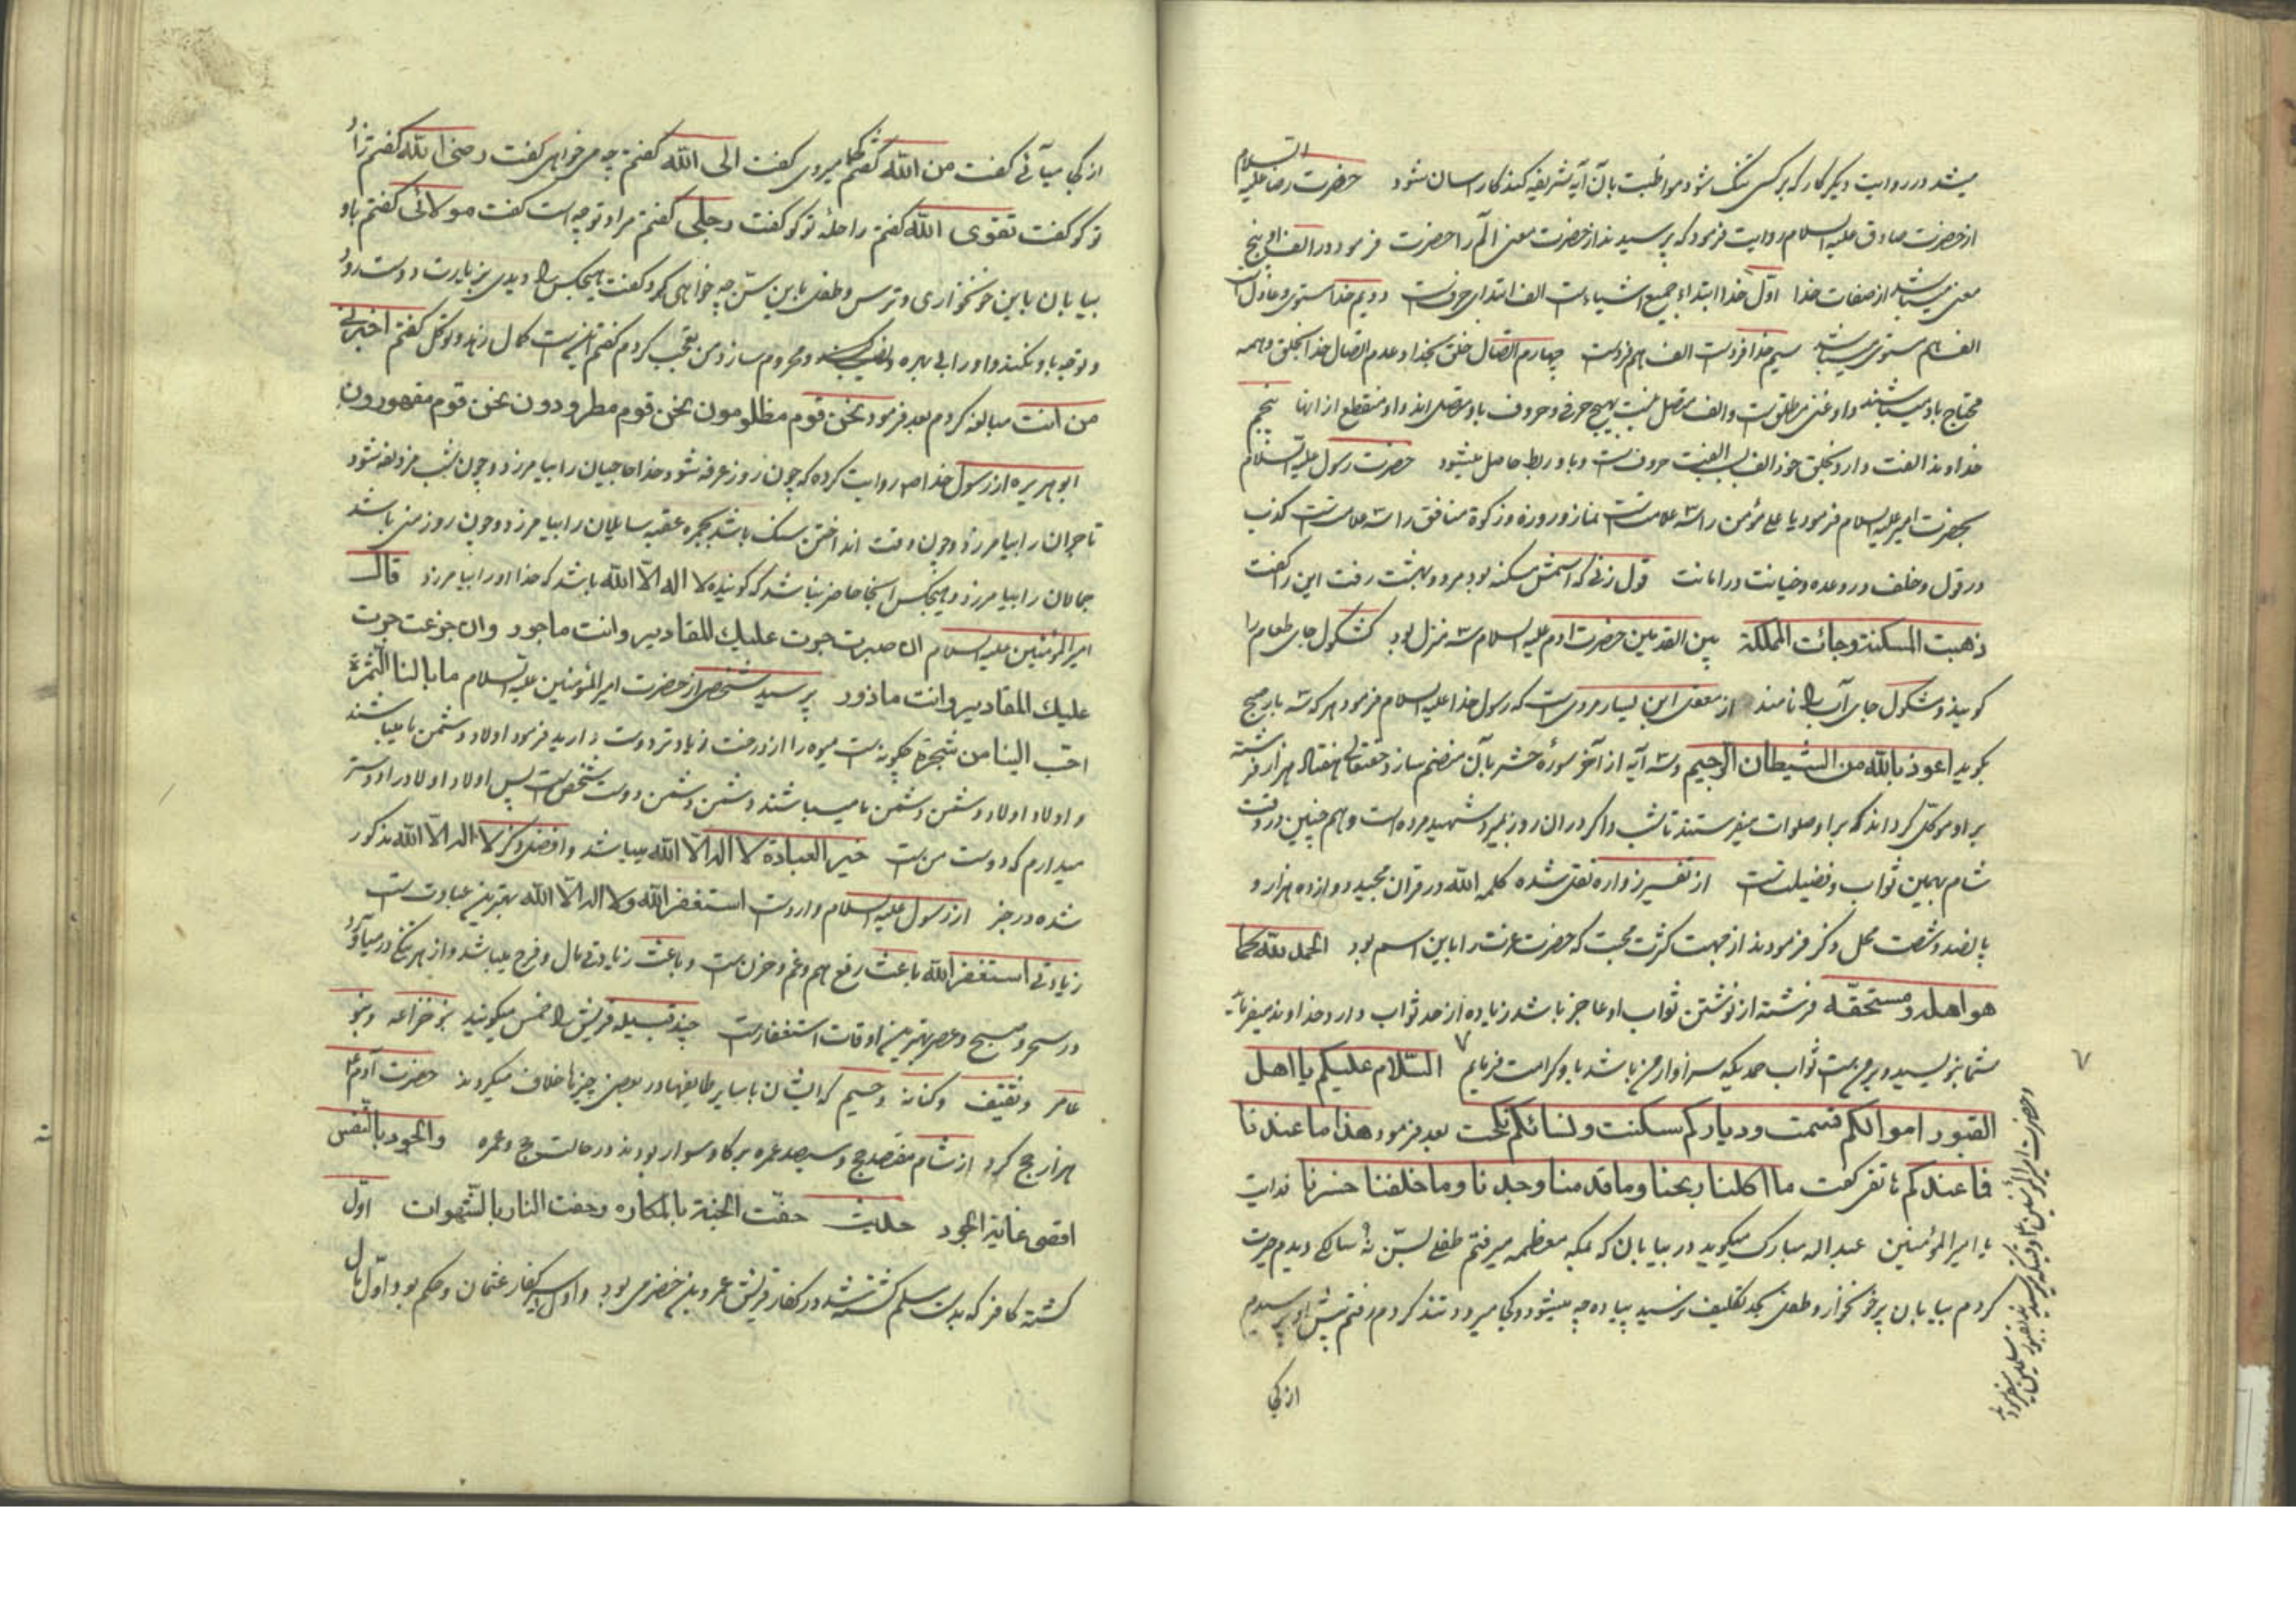 میشد در روایت دیگر کار که بر کسی تنگ شود مواظبت بآن آیه شریفه کند کار اسان شود حضرت رضا علیه السلام
از حضرت صادق علیه السلام روایت فرمود که پرسیدند از حضرت معنی الم را حضرت فرمود در الف او پنج
معنی میباشد از صفات خدا اول خدا ابتداء جمیع اشیاء است الف ابتدای حروفست دویم خدا مستوی و عادل است
الف هم مستوی میباشد سیم خدا فرد است الف هم فرد است چهارم اتصال خلق بخدا و عدم اتصال خدا بخلق و همه
محتاج باو میباشند و او غنی مطلق است و الف متصل نیست بهیچ حرفی و حروف باو متصل اند و او منقطع از انها پنجم
خداوند الفت دارد بخلق خود الف سبب الفت حروفست و باو ربط حاصل میشود حضرت رسول علیه السلام
بحضرت امیر علیه السلام فرمود یا علی مؤمن را سه علامتست نماز و روزه و زکوة منافق را سه علامتست کذب
در قول و خلف در وعده و خیانت در امانت قول زنی که اسمش مسکنه بود مرد و بهشت رفت این را گفت
ذهبت المسکنة وجائت المملکة بین القدمین حضرت ادم علیه السلام سه منزل بود کشکول جای طعام را
گویند و شکول جای آب را نامند از معقل ابن یسار مرویست که رسول خدا علیه السلام فرمود هر که سه بار صبح
بگوید اعوذ بالله من الشیطان الرجیم و سه آیه از آخر سوره حشر بآن منضم سازد حقتعالی هفتاد هزار فرشته
بر او موکل گرداند که بر او صلوات میفرستند تا شب و اگر در ان روز بمیرد شهید مرده است و هم چنین در وقت
شام بهمین ثواب و فضیلتست از تفسیر زواره نقل شده کلمه الله در قران مجید دوازده هزار و
پانصد و شصت محل ذکر فرمودند از جهت کثرت محبت که حضرت عزت را باین اسم بود الحمد لله کما
هو اهله ومستحقه فرشته از نوشتن ثواب او عاجز باشد زیاده از حد ثواب دارد خداوند میفرماید
شما بنویسید و بر من است ثواب حمدیکه سزاوار من باشد باو کرامت فرمایم السلام علیکم یا اهل
القبور اموالکم قسمت ودیارکم سکنت ونسائکم نکحت بعد فرمود هذا ما عندنا
فما عندکم هاتفی گفت ما اکلنا ربحنا وما قدمنا وجدنا وما خلفنا خسرنا
یا امیر المؤمنین عبد الله مبارک میگوید در بیابان که بمکه معظمه میرفتم طفلی بسن نه سالگی دیدم حیرت
کردم بیابان پر خونخوار و طفل بحد تکلیف نرسید پیاده چه میشود و کجا میرود تند کردم رفتم پیش او پرسیدم
از کجا
از کجا میآئی گفت من الله گفتم کجا میروی گفت الی الله گفتم چه میخواهی گفت رضی الله گفتم زاد
تو کو گفت تقوی الله گفتم راحله تو کو گفت رجلی گفتم مراد تو چه است گفت مولائی گفتم باو
بیابان باین خونخواری و ترس و طفل باین سن چه خواهی کرد گفت هیچکس را دیدی بزیارت دوست رود
و توجه باو نکند و او را بی بهره و محروم سازد من تعجب کردم گفتم اینست کمال زهد و توکل گفتم اخبرنی
من انت مبالغه کردم بعد فرمود نحن قوم مظلومون نحن قوم مطرودون نحن قوم مقهورون
ابو هریره از رسول خدا ص روایت کرده که چون روز عرفه شود خدا حاجیان را بیامرزد و چون شب مزدلفه شود
تاجران را بیامرزد و چون وقت انداختن سنگ باشد بجمره عقبه سایلان را بیامرزد و چون روز منی باشد
جمالان را بیامرزد و هیچکس اینجا حاضر نباشد که گوینده لا اله الا الله باشد که خدا او را بیامرزد قال
امیر المؤمنین علیه السلام ان صبرت جرت علیک المقادیر وانت ماجور وان جزعت جرت
علیک المقادیر وانت ماذور پرسید شخصی از حضرت امیر المؤمنین علیه السلام ما بالنا الثمرة
احب الینا من شجرة چگونه است میوه را از درخت زیادتر دوست دارید فرمود اولاد دشمن ما میباشند
و اولاد اولاد دشمن دشمن ما میباشند دشمن دشمن دوست شخص است پس اولاد اولاد را دوستر
میدارم که دوست من است خیر العبادة لا اله الا الله میباشد و افضل ذکر لا اله الا الله مذکور
شده در خبر از رسول علیه السلام وارد است استغفر الله ولا اله الا الله بهترین عبادتست
زیادتی استغفر الله باعث رفع هم و غم و حزن است و باعث زیادتی مال و فرح میباشد و از هر تنگی در میآورد
در سحر و صبح و عصر بهترین اوقات استغفار است چند قبیله قریش را خمس میگویند بنو خزاعه و بنو
عامر و ثقیف و کنانه و خیم که ایشان با سایر طایفها در بعضی چیزها خلاف میکردند حضرت آدم ع
هزار حج کرد از شام مقصد حج و سیصد عمره بر گاو سوار بودند در حالت حج و عمره والجود بالنفس
اقصی غایة الجود حدیث حفت الجنة بالمکاره وحفت النار بالشهوات اول
کشته کافر که بدست مسلم کشته شد در کفار قریش عمرو بن خضرمی بود و اول اسیر کفار عثمان و حکم بود و اول مال